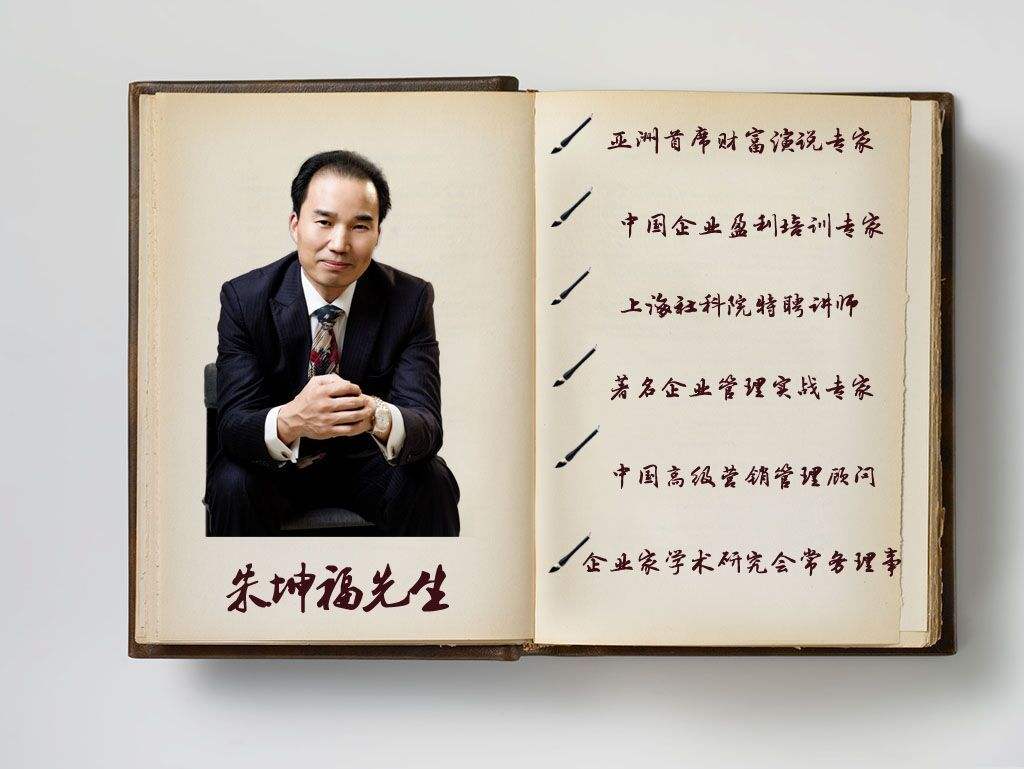 朱坤福先生
亚洲首席财富演说专家
中国企业盈利培训专家
上海社科院特聘讲师
著名企业管理实战专家
中国高级营销管理顾问
企业家学术研究会常务理事